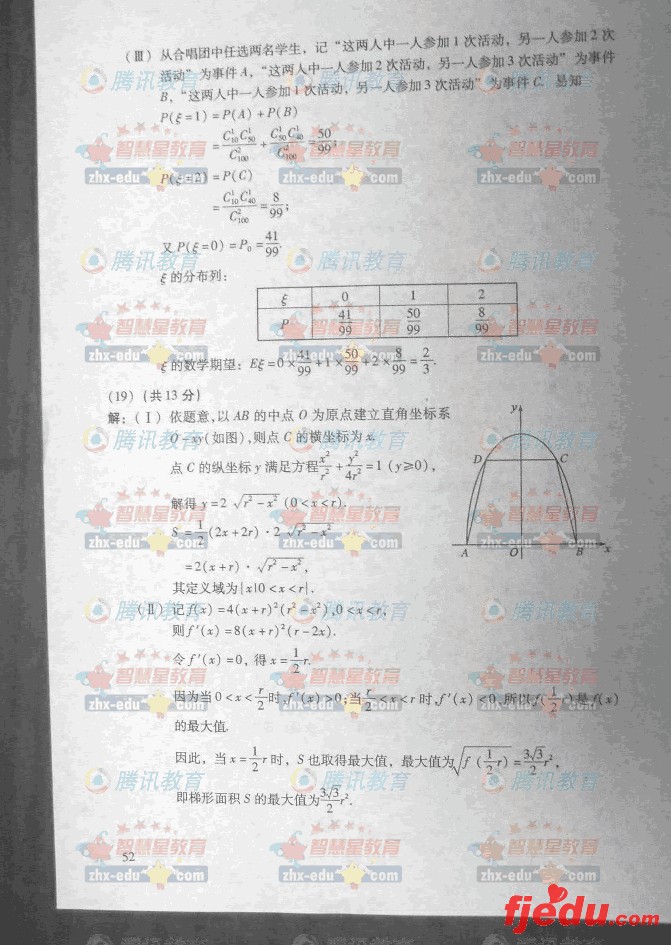 (Ⅲ) 从合唱团中任选两名学生，记“这两人中一人参加 1 次活动，另一人参加 2 次
活动”为事件 A，“这两人中一人参加 2 次活动，另一人参加 3 次活动”为事件
B，“这两人中一人参加 1 次活动，另一人参加 3 次活动”为事件 C. 易知
P(ξ=1)=P(A)+P(B)
=\frac{C_{10}^1C_{50}^1}{C_{100}^2}+\frac{C_{50}^1C_{40}^1}{C_{100}^2}=\frac{50}{99};
P(ξ=2)=P(C)
=\frac{C_{10}^1C_{40}^1}{C_{100}^2}=\frac{8}{99};
又 P(ξ=0)=P_0=\frac{41}{99}.
ξ 的分布列：
ξ 0 1 2
P \frac{41}{99} \frac{50}{99} \frac{8}{99}
ξ 的数学期望：Eξ=0×\frac{41}{99}+1×\frac{50}{99}+2×\frac{8}{99}=\frac{2}{3}.
(19)(共 13 分)
解：(Ⅰ) 依题意，以 AB 的中点 O 为原点建立直角坐标系
O-xy(如图)，则点 C 的横坐标为 x.
点 C 的纵坐标 y 满足方程\frac{x^2}{r^2}+\frac{y^2}{4r^2}=1 (y≥0)，
解得 y=2\sqrt{r^2-x^2} (0<x<r).
S=\frac{1}{2}(2x+2r)·2\sqrt{r^2-x^2}
=2(x+r)·\sqrt{r^2-x^2}，
其定义域为{x|0<x<r}.
y
D
C
A
O
B
x
(Ⅱ) 记 f(x)=4(x+r)^2(r^2-x^2),0<x<r，
则 f′(x)=8(x+r)^2(r-2x).
令 f′(x)=0，得 x=\frac{1}{2}r.
因为当 0<x<\frac{r}{2}时,f′(x)>0;当\frac{r}{2}<x<r 时,f′(x)<0,所以 f(\frac{1}{2}r)是 f(x)
的最大值.
因此，当 x=\frac{1}{2}r 时，S 也取得最大值，最大值为\sqrt{f(\frac{1}{2}r)}=\frac{3\sqrt{3}}{2}r^2，
即梯形面积 S 的最大值为\frac{3\sqrt{3}}{2}r^2.
52
腾讯教育
智慧星教育
zhx-edu.com
fjedu.com